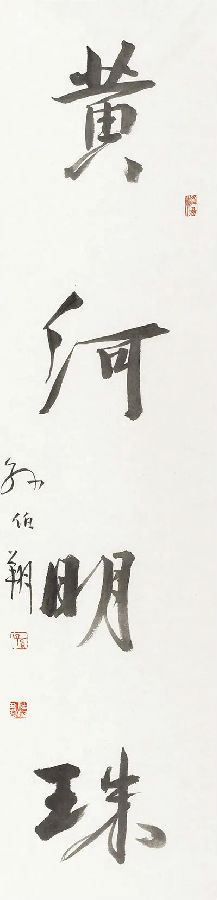 黄河明珠
孙伯翔